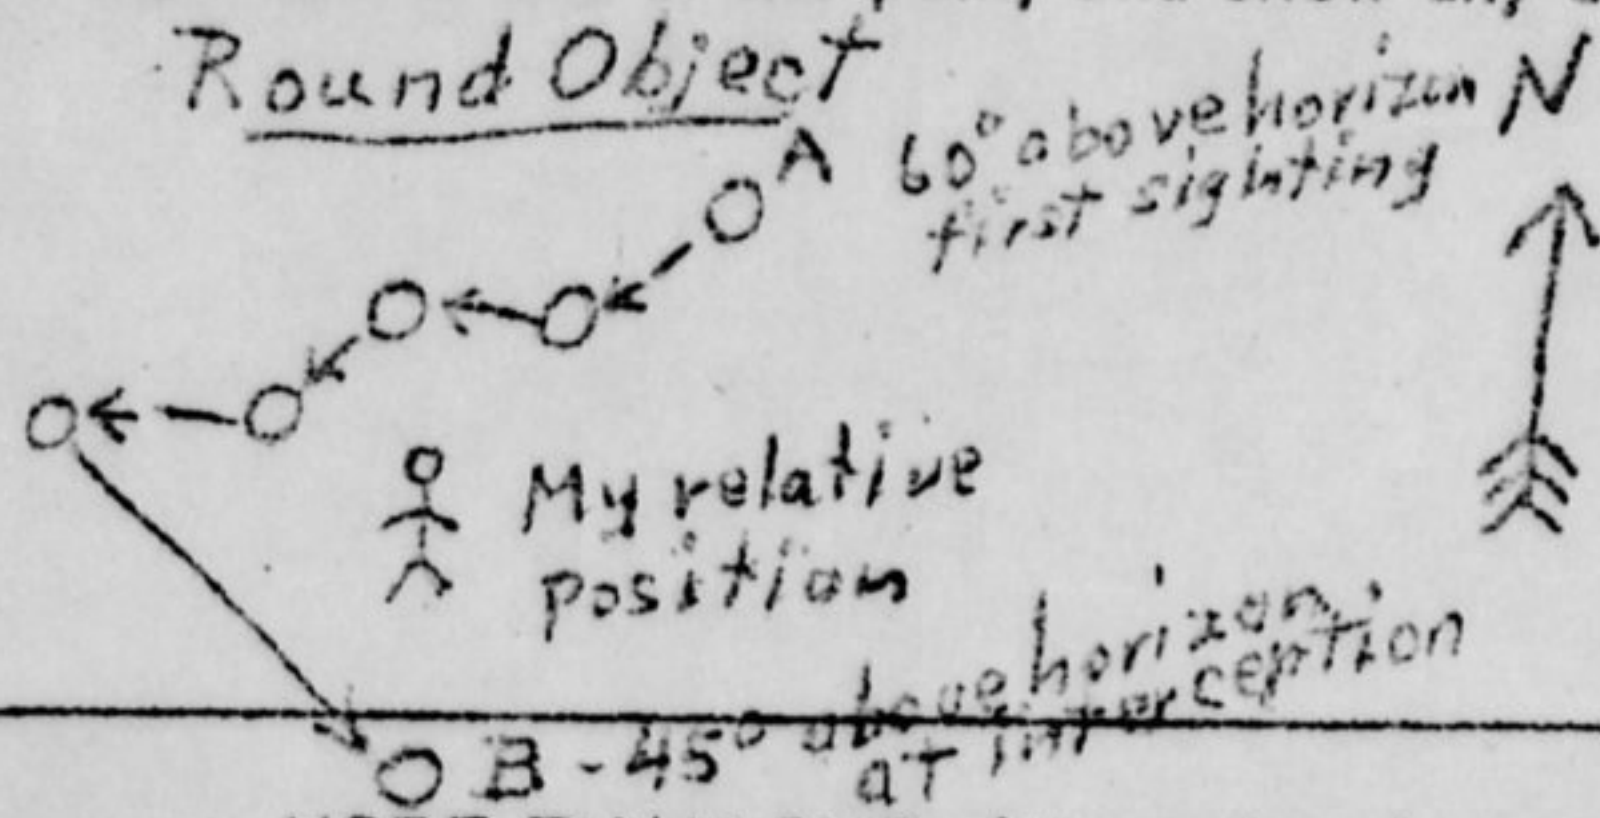 Round Object
A
60° above horizon
first sighting
N
My relative
position
B - 45° above horizon
at interception